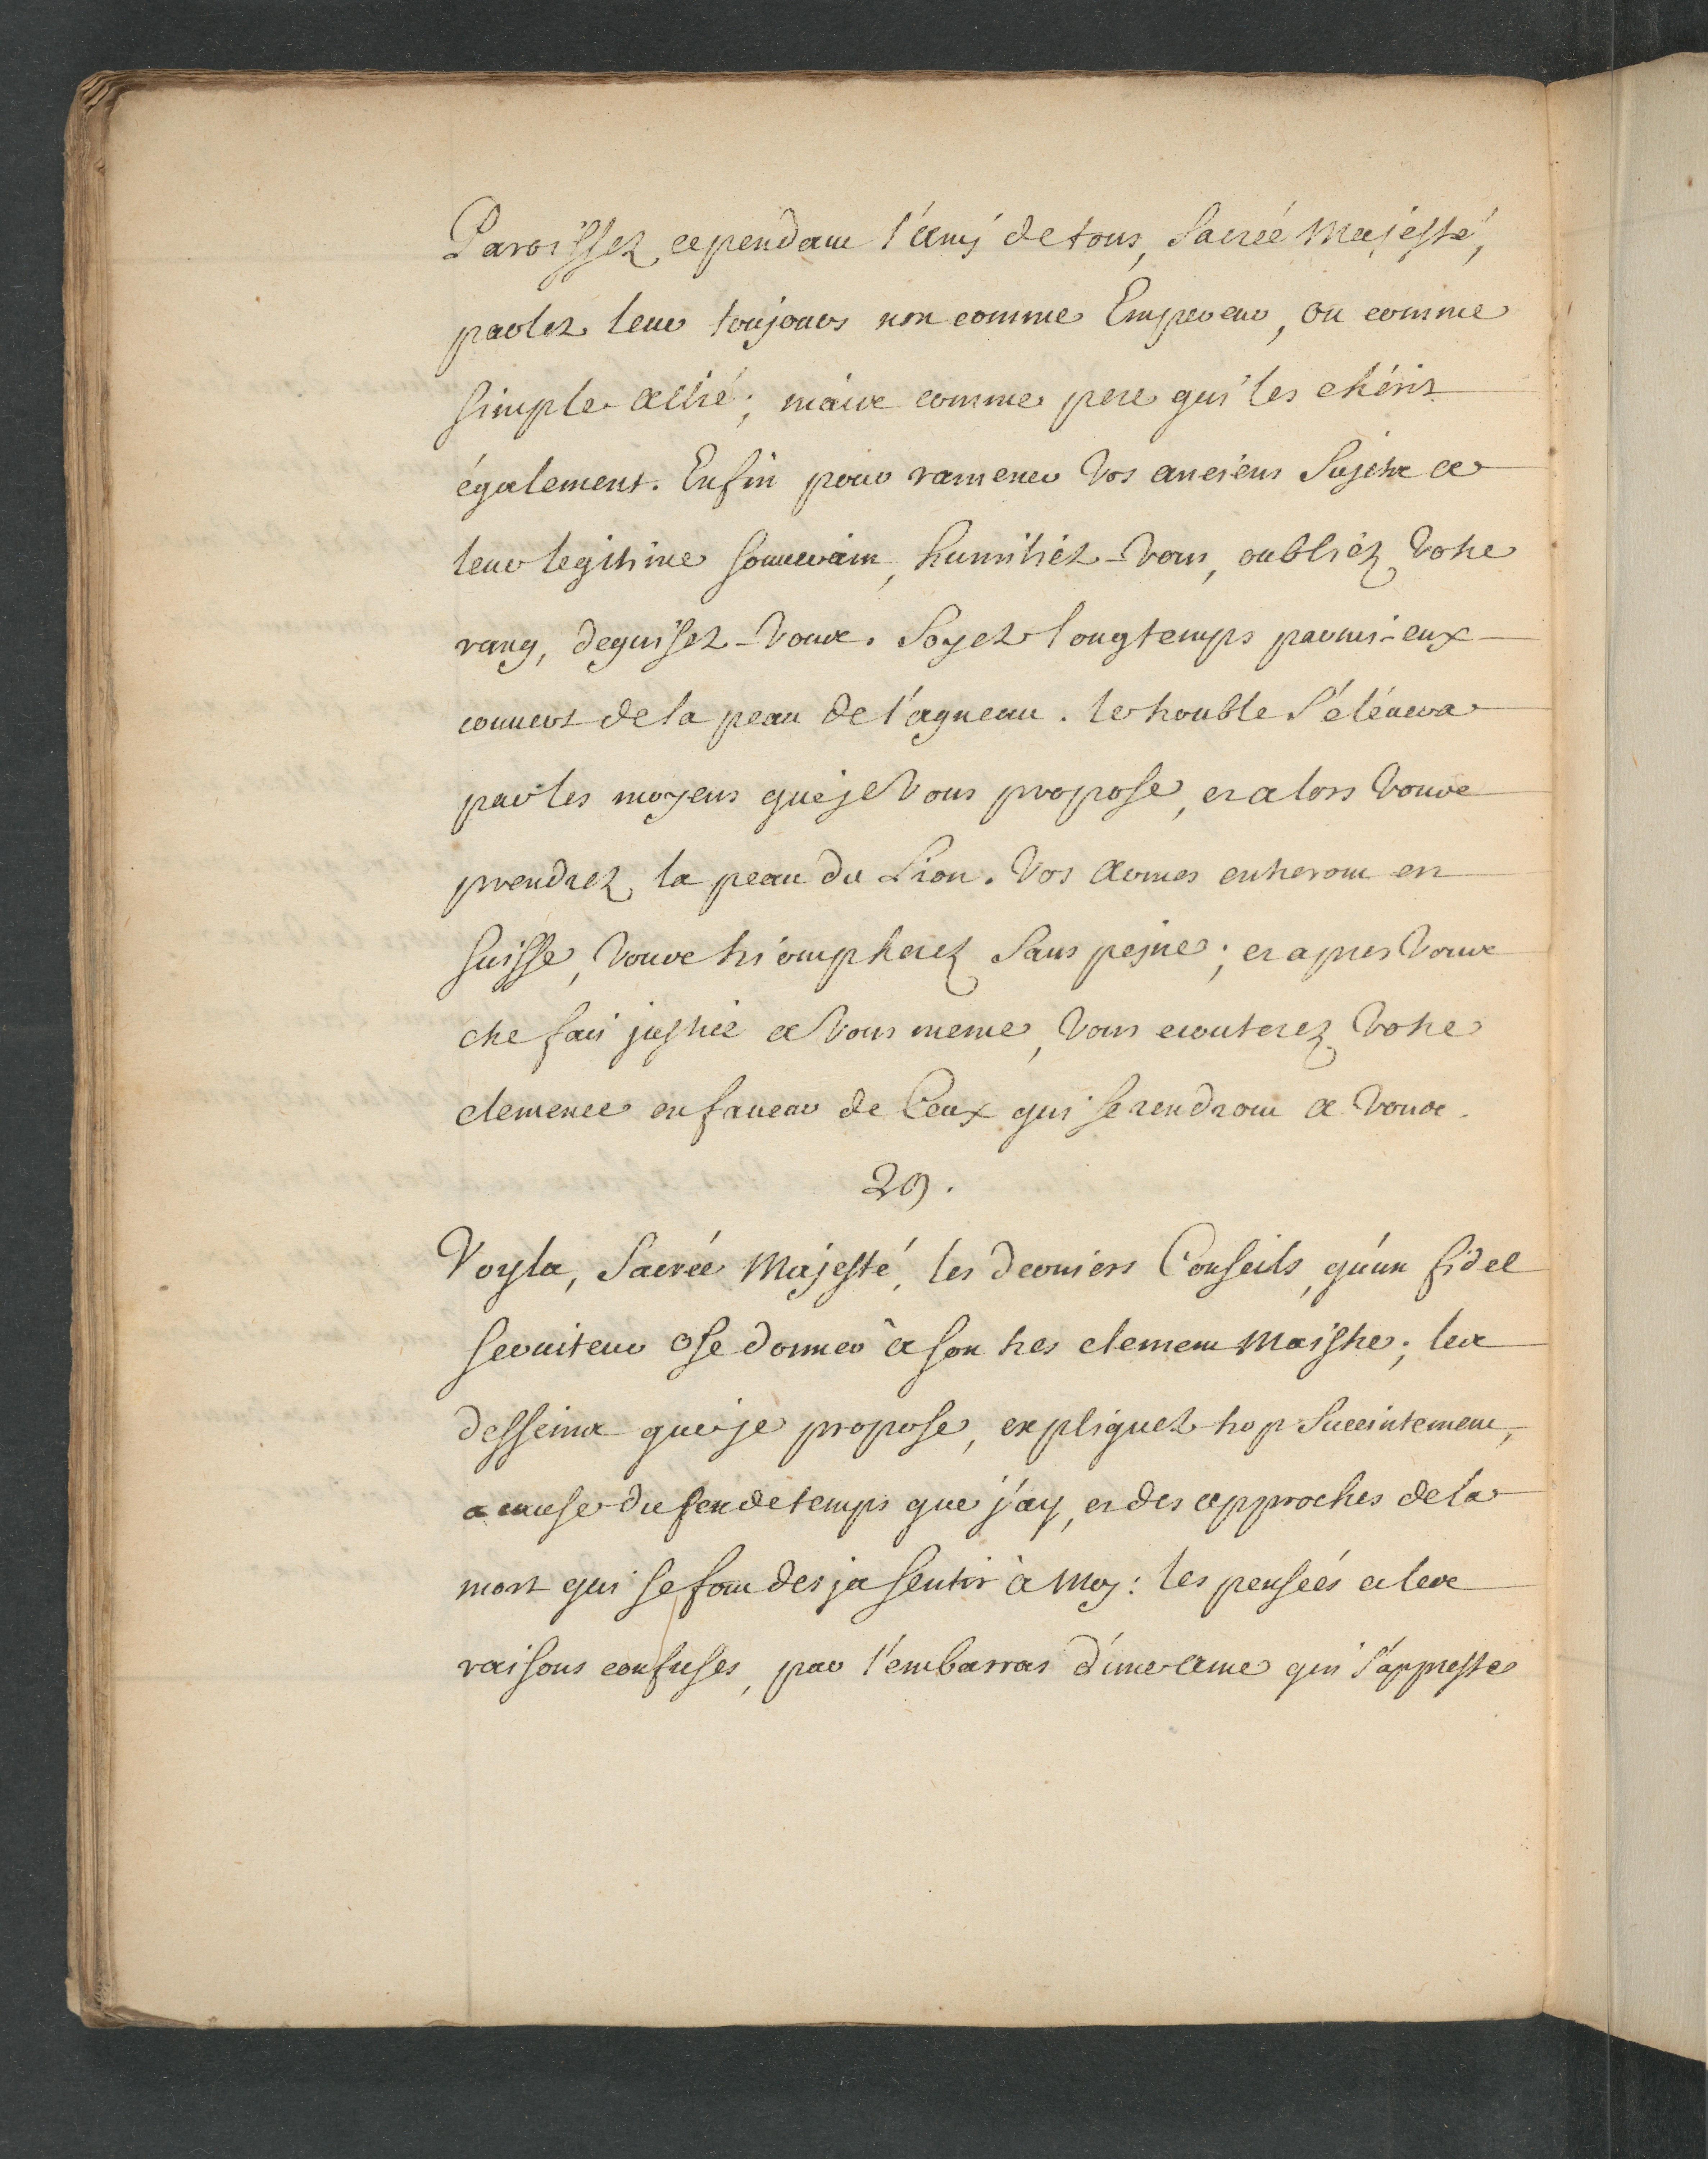 Paroissez cependant l'amy de tous, Sacrée Majesté,
parlez leur toujours non comme Empereur, ou comme
simple allié; mais comme pere qui les chérit
également. Enfin pour ramener Vos anciens Sujets a
leur legitime souuerain, humiliéz-Vous, oubliéz Votre
rang, deguisez-Vous. Soyez longtemps parmi-eux
couuert de la peau de l'agneau. le trouble S'éléuera
par les moyens que je Vous propose, et alors Vous
prendrez la peau du Lion. Vos armes entreront en
Suisse, Vous triompherez Sans pejne; et apres Vous
etre fait justice a Vous meme, Vous ecouterez Votre
clemence en faueur de Ceux qui se rendront a Vous.
29.
Voyla, Sacrée Majesté, les derniers Conseils, qu'un fidel
seruiteur ose donner à son tres clement Maistre; les
desseins que je propose, expliquez trop Succintement,
a cause du peu de temps que j'ay, et des approches de la
mort qui se font desja sentir à Moy: les pensées et les
raisons confuses, par l'embarras d'une ame qui S'appreste